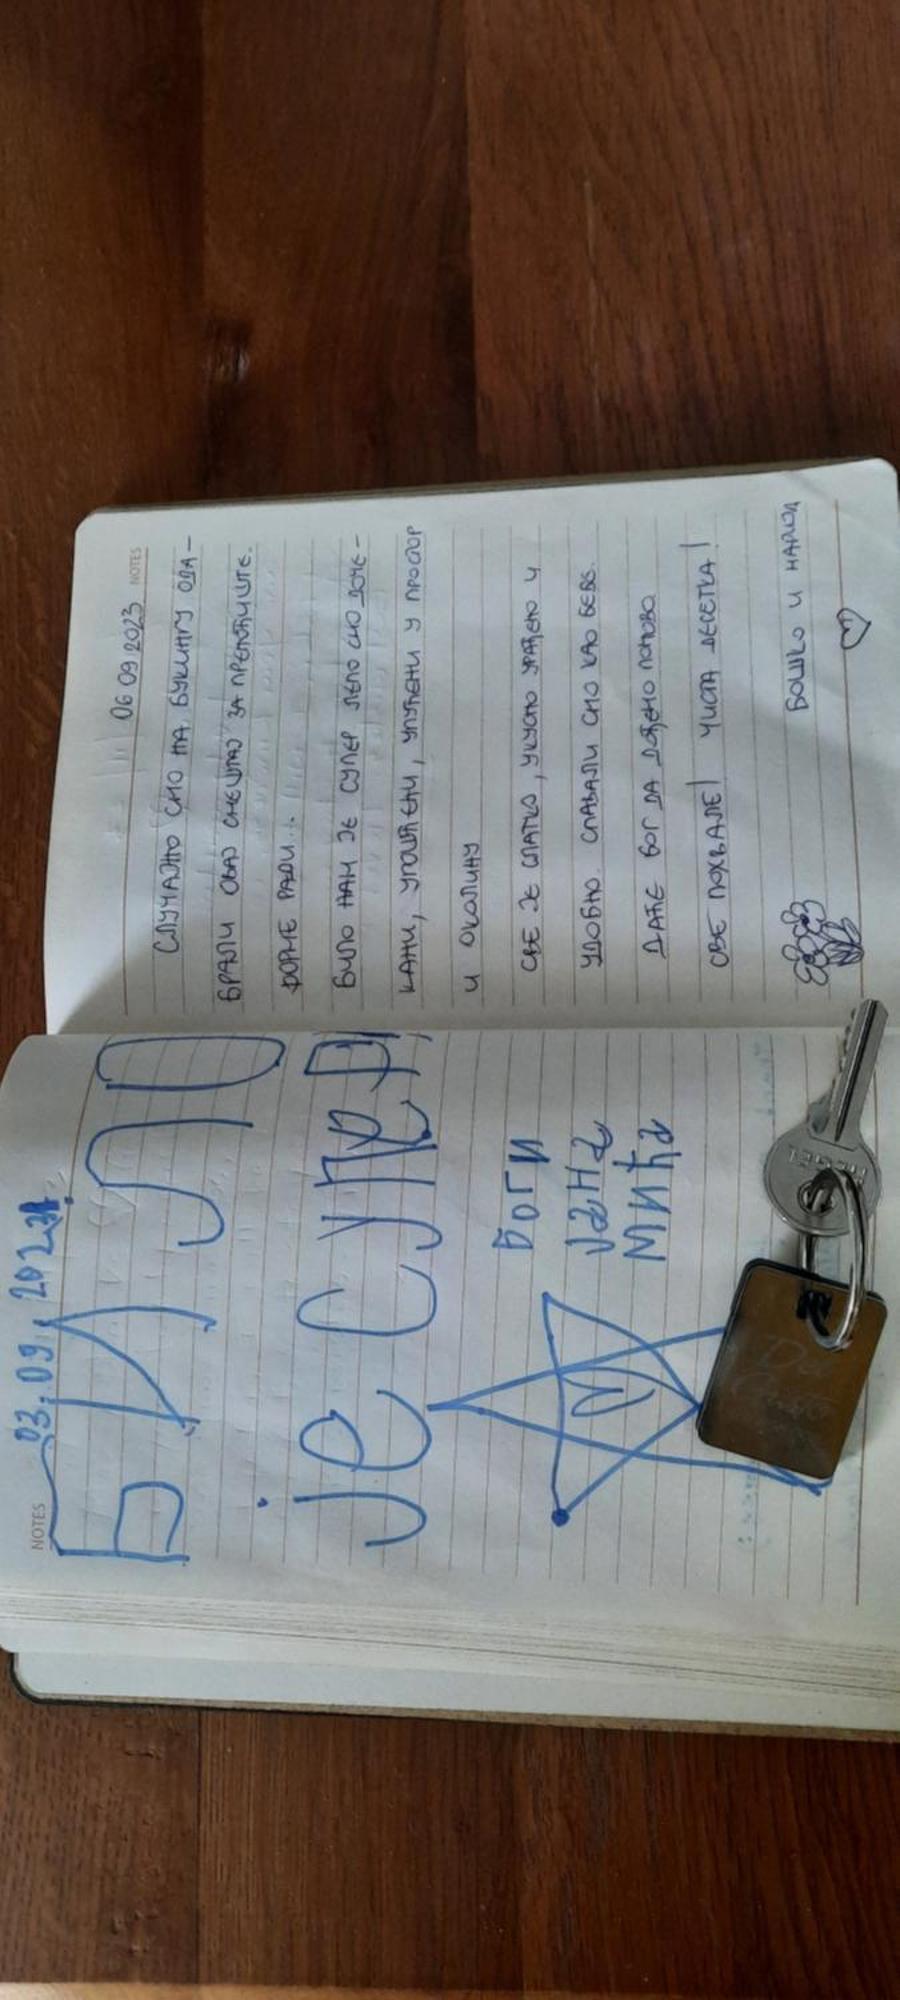 NOTES
03.09.2023.
БИЛО
је СУПеР
БОГИ
Јана
Мића
06 09 2023 NOTES
СЛУЧАЈНО СМО НА БУКИНГУ ОДА-
БРАЛИ ОВАЈ СМЕШТАЈ ЗА ПРЕНОЋИШТЕ.
ФОРМЕ РАДИ...
БИЛО НАМ ЈЕ СУПЕР ЛЕПО СМО ДОЧЕ-
КАНИ, УПУЋЕНИ У ПРОСТОР
И ОКОЛИНУ
СВЕ ЈЕ СЛАТКО, УКУСНО УРАЂЕНО И
УДОБНО СПАВАЛИ СМО КАО БЕБЕ.
ДАЋЕ БОГ ДА ДОЂЕМО ПОНОВО.
СВЕ ПОХВАЛЕ! ЧИСТА ДЕСЕТКА!
БОШКО И